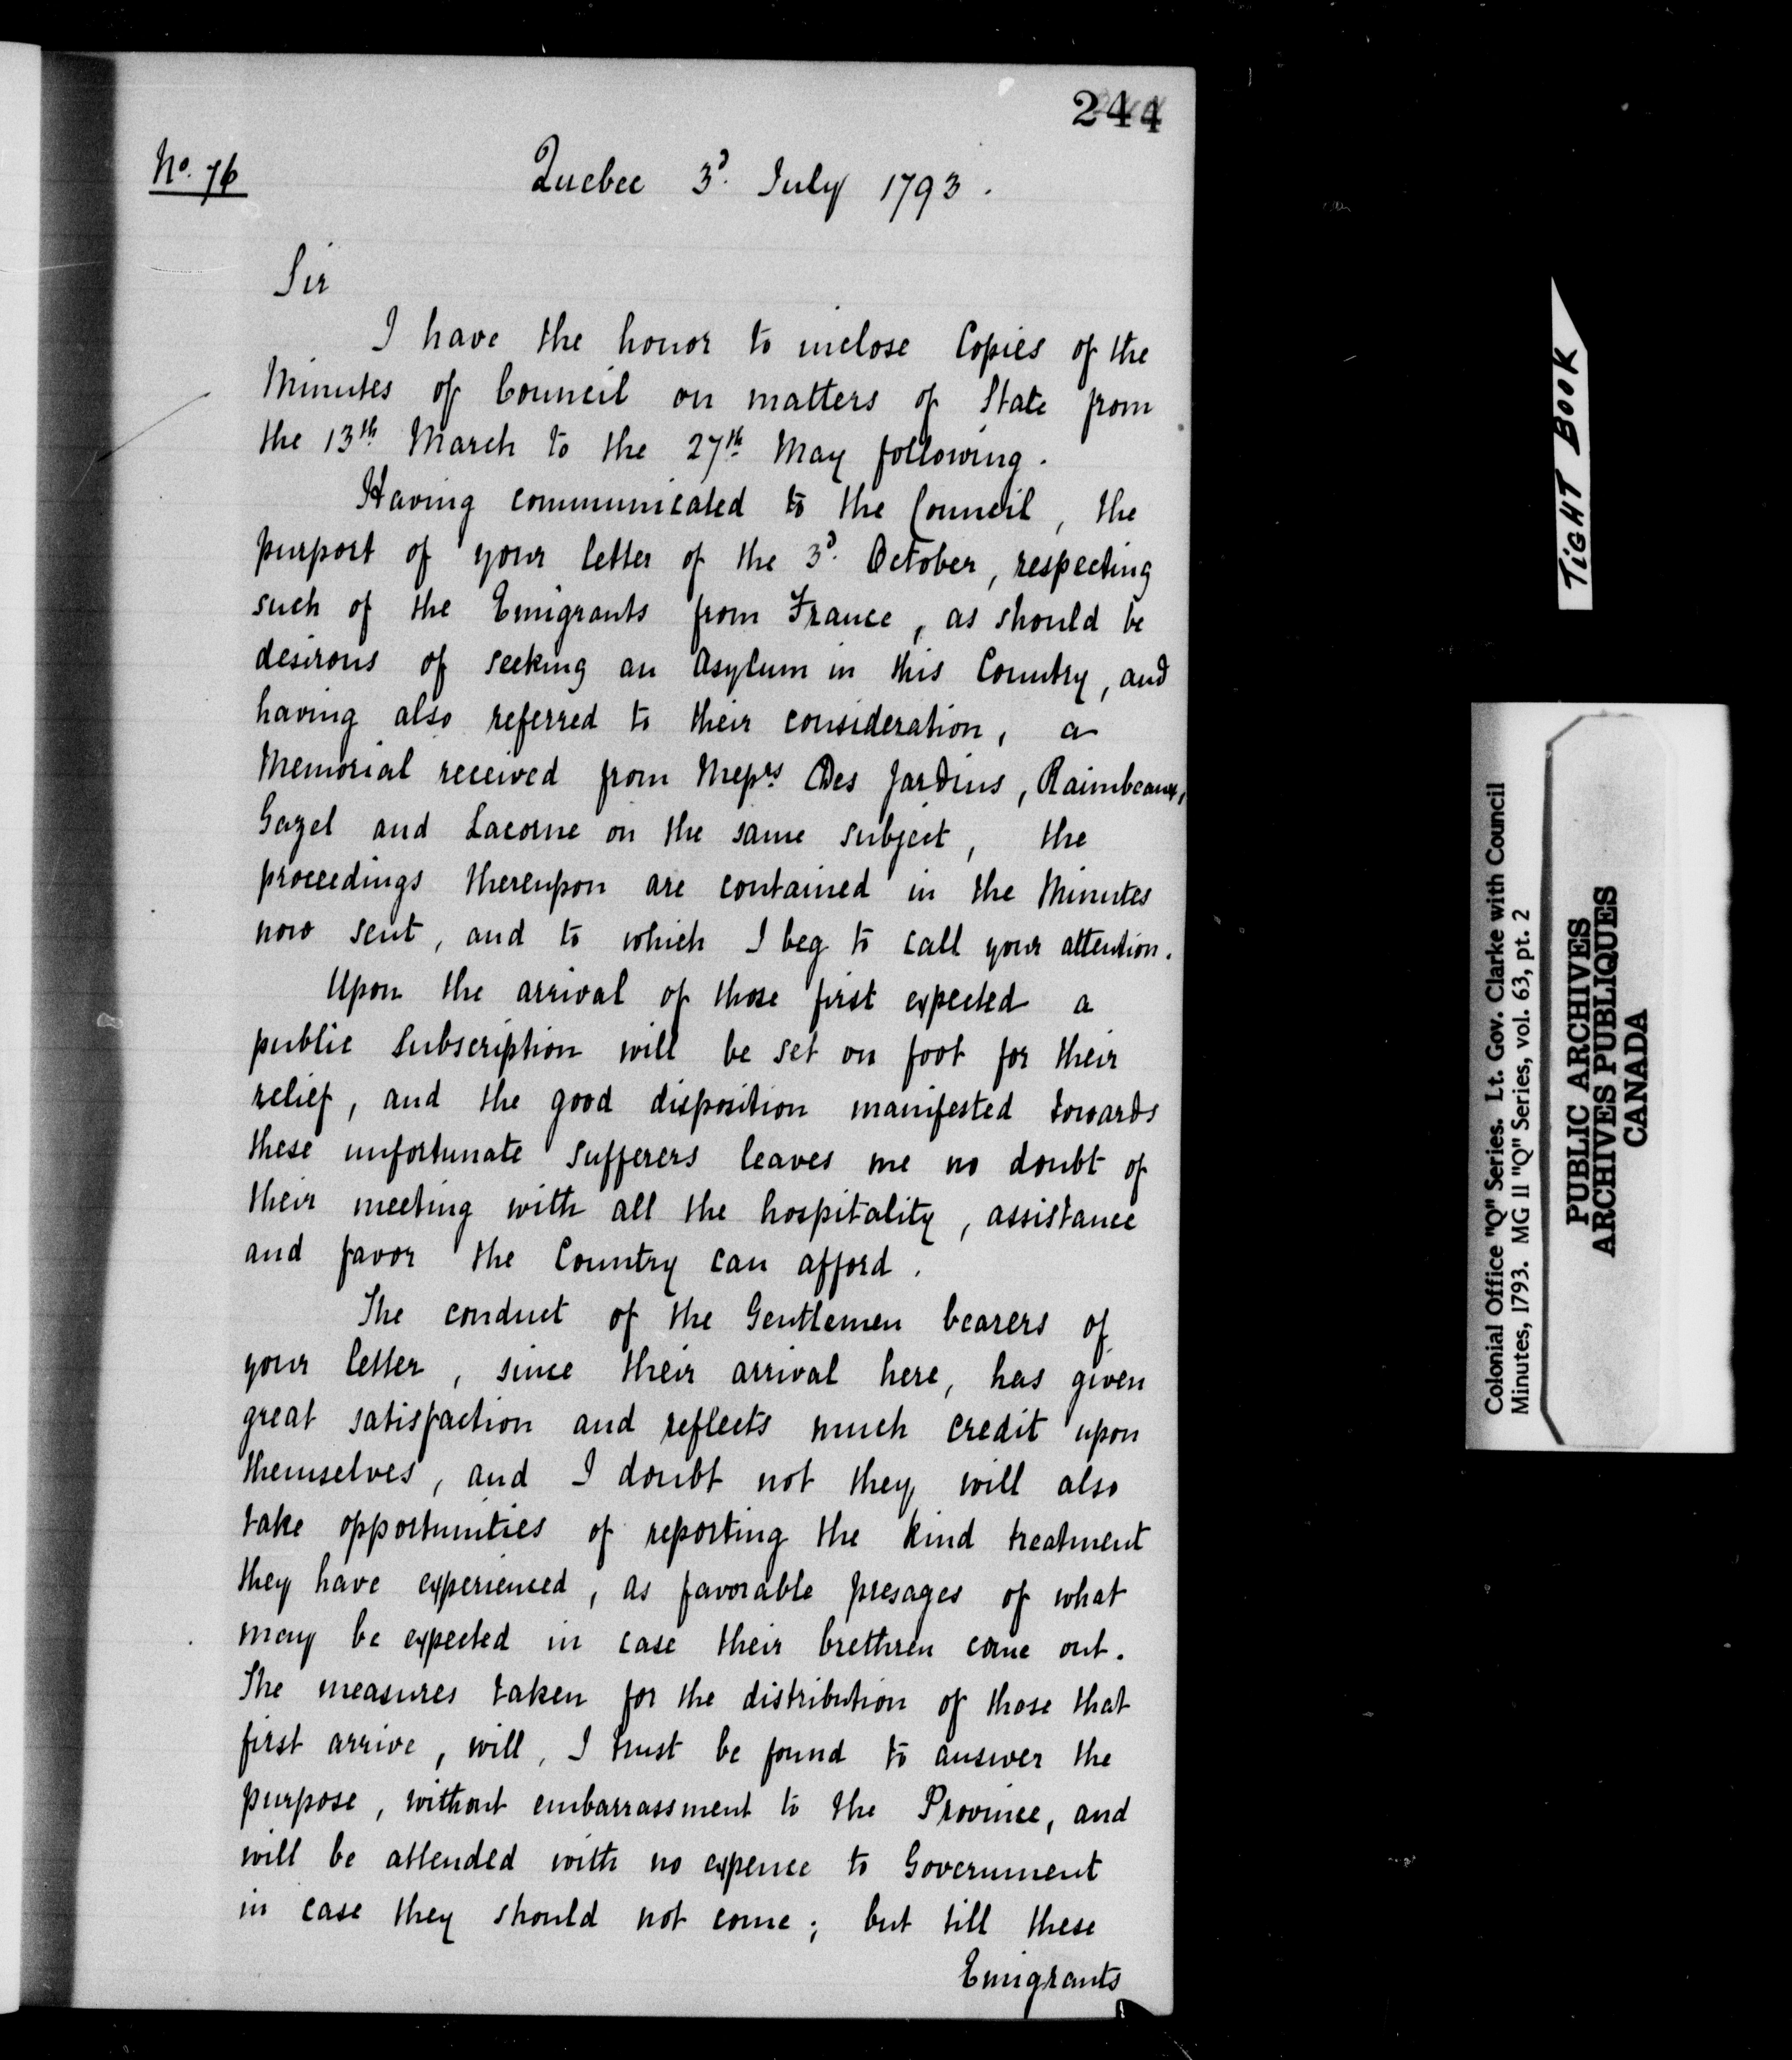 244
No. 76
Quebec 3d. July 1793.
Sir
I have the honor to inclose Copies of the
Minutes of Council on matters of State from
the 13th March to the 27th May following.
Having communicated to the Council, the
purport of your letter of the 3d. October, respecting
such of the Emigrants from France, as should be
desirous of seeking an Asylum in this Country, and
having also referred to their consideration, a
Memorial received from Messrs. Des Jardins, Raimbeaux,
Gazel and Lacorne on the same subject, the
proceedings thereupon are contained in the Minutes
now sent, and to which I beg to call your attention.
Upon the arrival of those first expected a
public Subscription will be set on foot for their
relief, and the good disposition manifested towards
these unfortunate sufferers leaves me no doubt of
their meeting with all the hospitality, assistance
and favor the Country can afford.
The conduct of the Gentlemen bearers of
your letter, since their arrival here, has given
great satisfaction and reflects much credit upon
themselves, and I doubt not they will also
take opportunities of reporting the kind treatment
they have experienced, as favorable presages of what
may be expected in case their brethren come out.
The measures taken for the distribution of those that
first arrive, will, I trust be found to answer the
purpose, without embarrassment to the Province, and
will be attended with no expence to Government
in case they should not come; but till these
Emigrants
TIGHT BOOK
Colonial Office "Q" Series. Lt. Gov. Clarke with Council
Minutes, 1793. MG 11 "Q" Series, vol. 63, pt. 2
PUBLIC ARCHIVES
ARCHIVES PUBLIQUES
CANADA